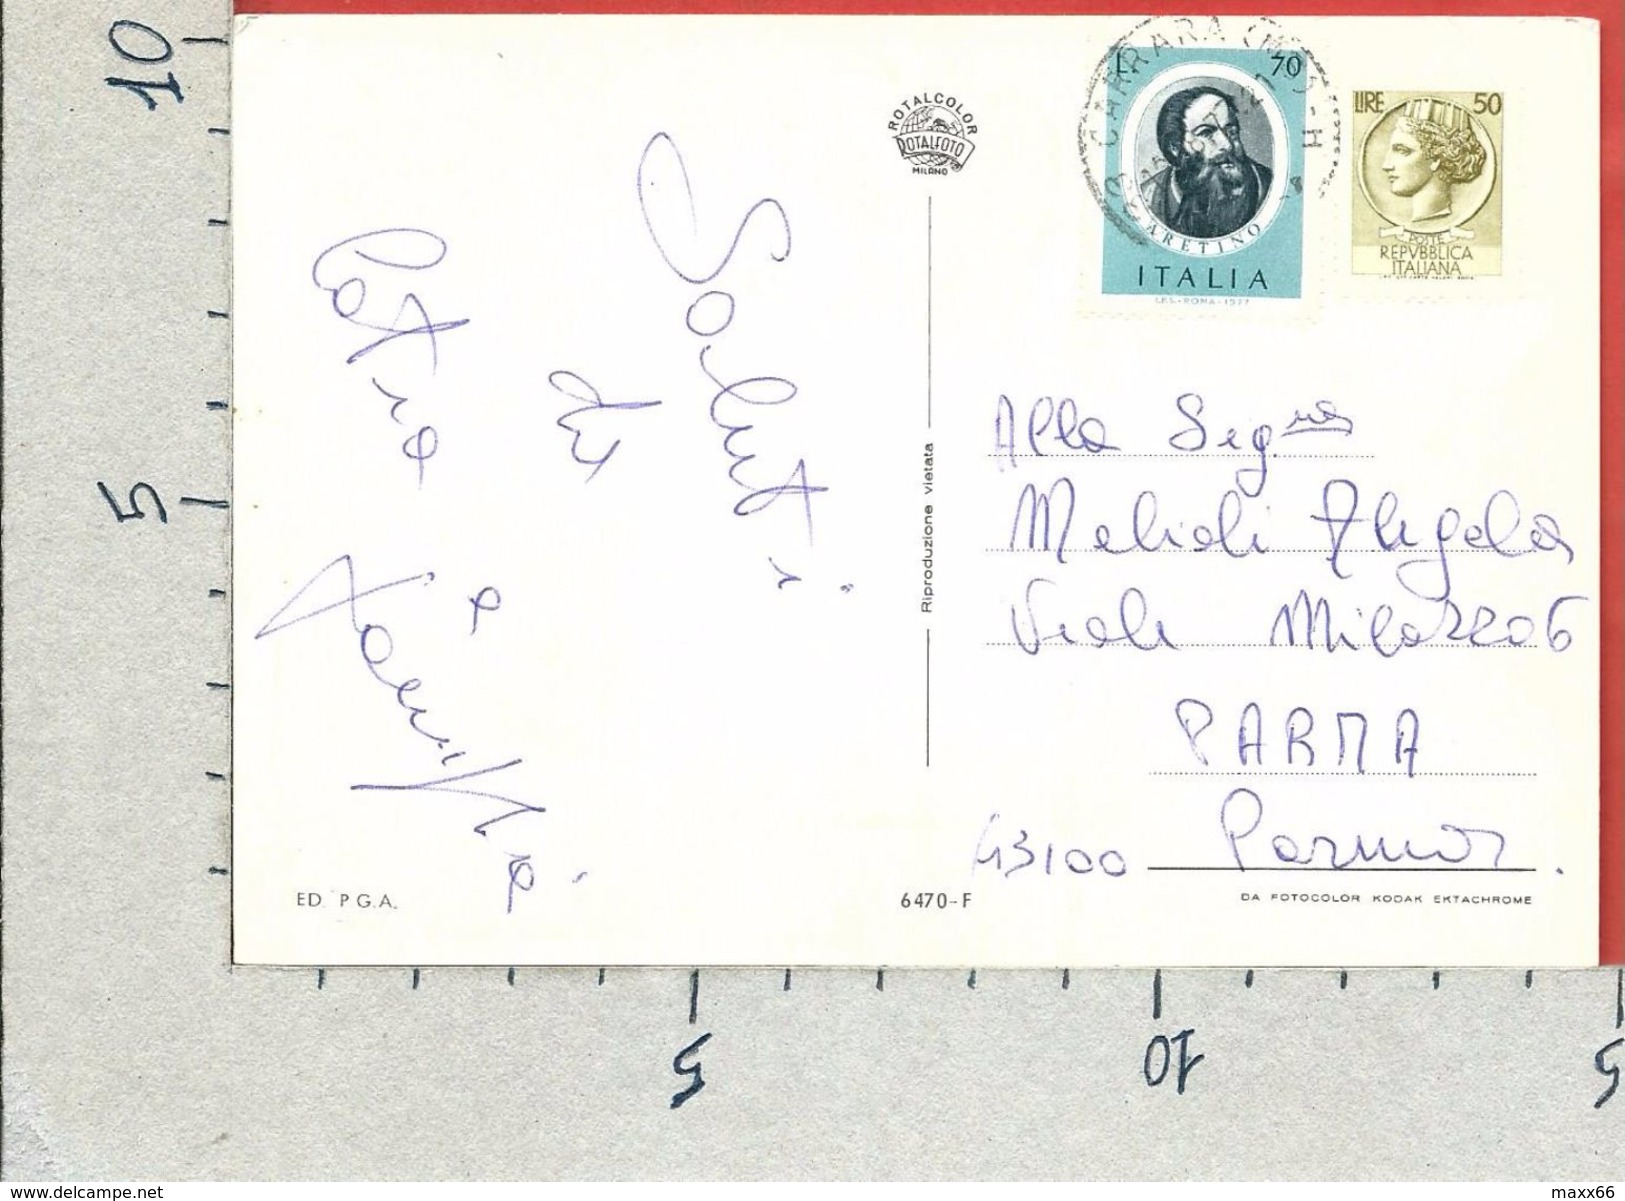 10
5
5
10
5
ROTALCOLOR
ROTALFOTO
MILANO
L. 70
ARETINO
ITALIA
I.P.S.-ROMA-1977
CARRARA (MS)
LIRE 50
POSTE
REPVBBLICA
ITALIANA
Saluti
da
e
famiglia
Riproduzione vietata
Alla Sig.ra
Melioli Angela
Viale Milazzo 6
PARMA
43100 Parma.
ED. P.G.A.
6470-F
DA FOTOCOLOR KODAK EKTACHROME
www.delcampe.net
maxx66